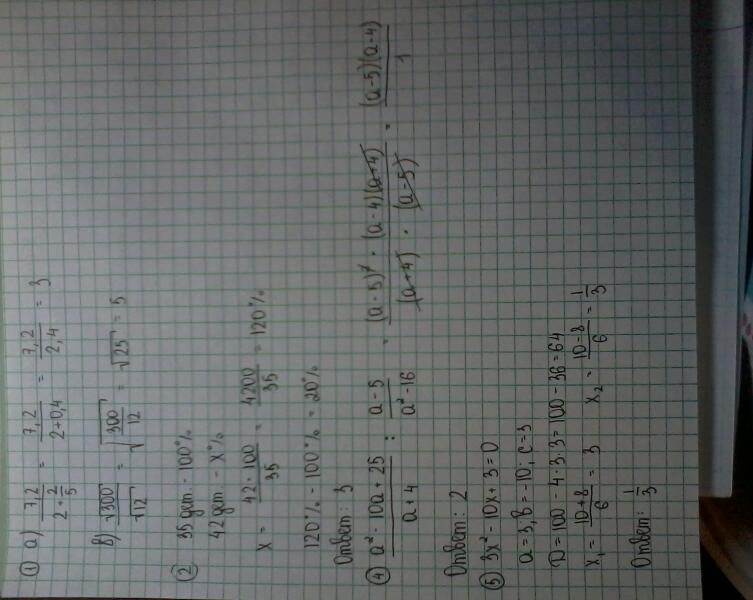 ① а) 7,2 / (2 + 2/5) = 7,2 / (2+0,4) = 7,2 / 2,4 = 3
в) √300 / √12 = √(300/12) = √25 = 5
② 35 дет. - 100%
42 дет. - x%
x = (42 · 100) / 35 = 4200 / 35 = 120%
120% - 100% = 20%
Ответ: 3
④ (a² - 10a + 25) / (a + 4) : (a - 5) / (a² - 16) = ((a - 5)² · (a - 4)(a + 4)) / ((a + 4) · (a - 5)) = (a - 5)(a - 4) / 1
Ответ: 2
⑤ 3x² - 10x + 3 = 0
a = 3, в = -10; c = 3
D = 100 - 4·3·3 = 100 - 36 = 64
x₁ = (10+8) / 6 = 3 x₂ = (10-8) / 6 = 1/3
Ответ: 1/3